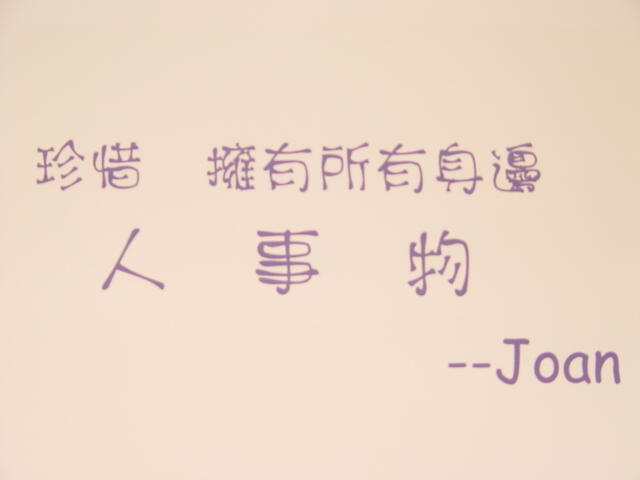 珍惜 擁有所有身邊
人 事 物
--Joan